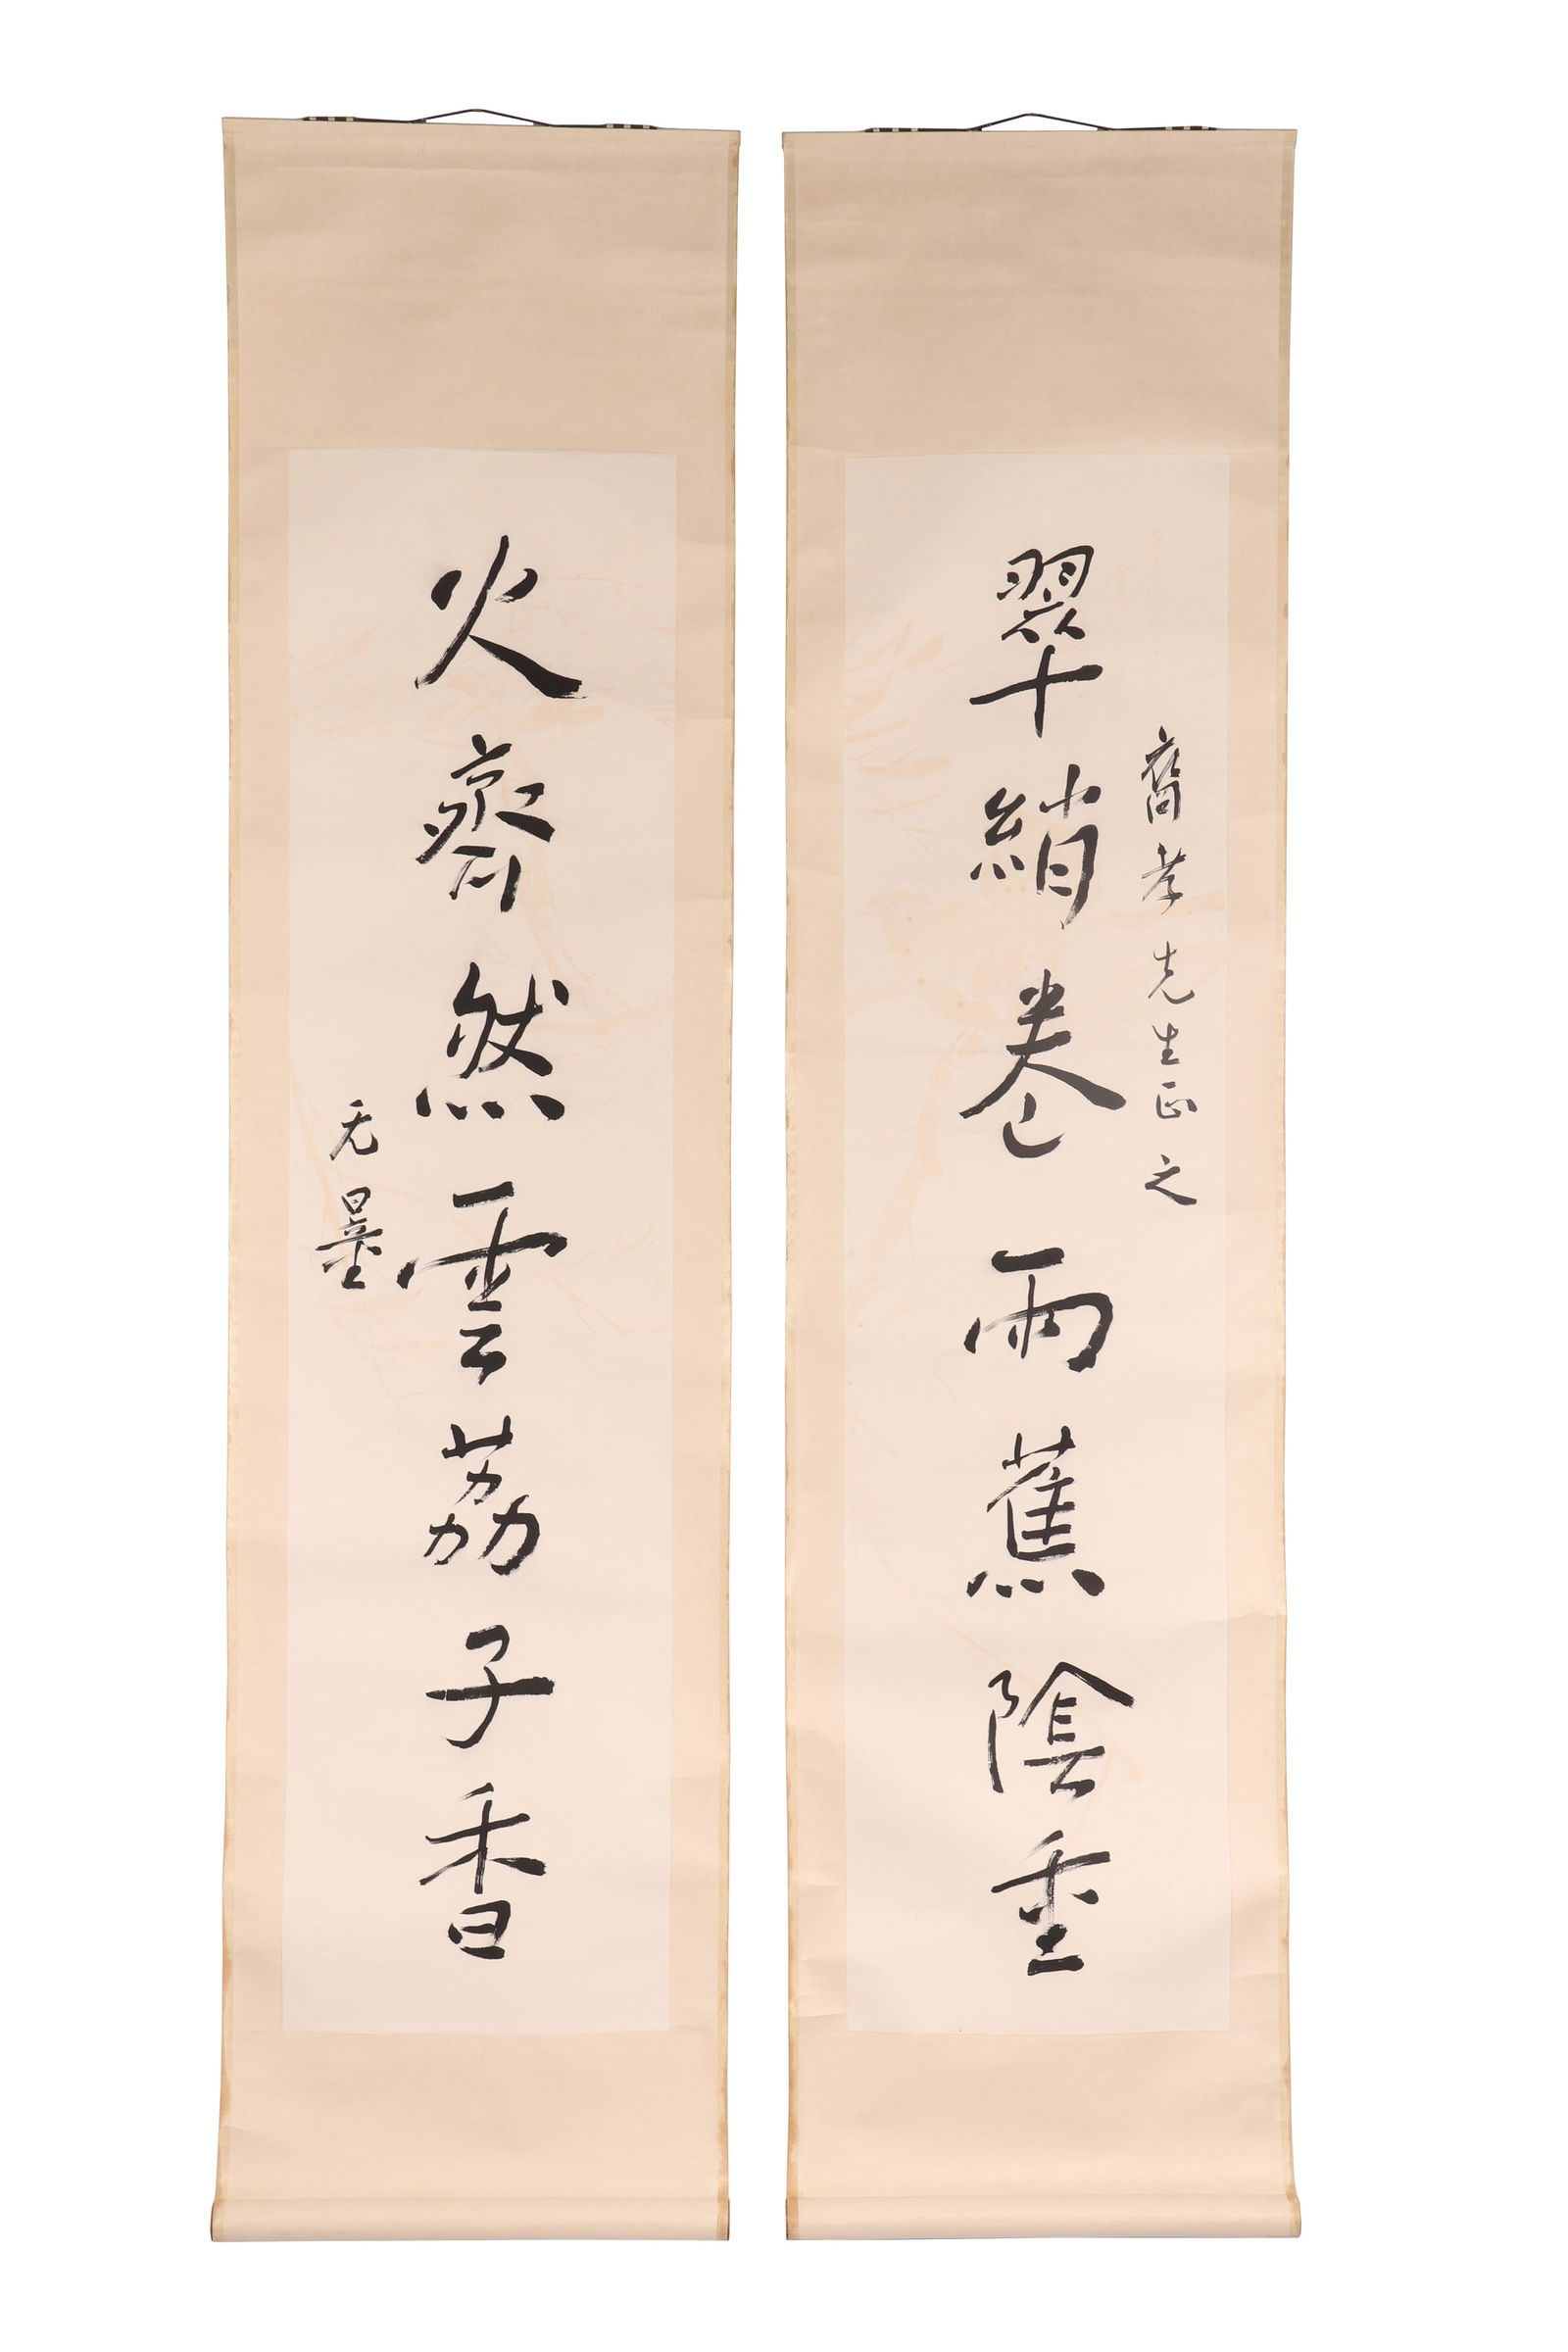 先生正之
翠綃卷雨蕉陰重
火齊然雲荔子香
无量